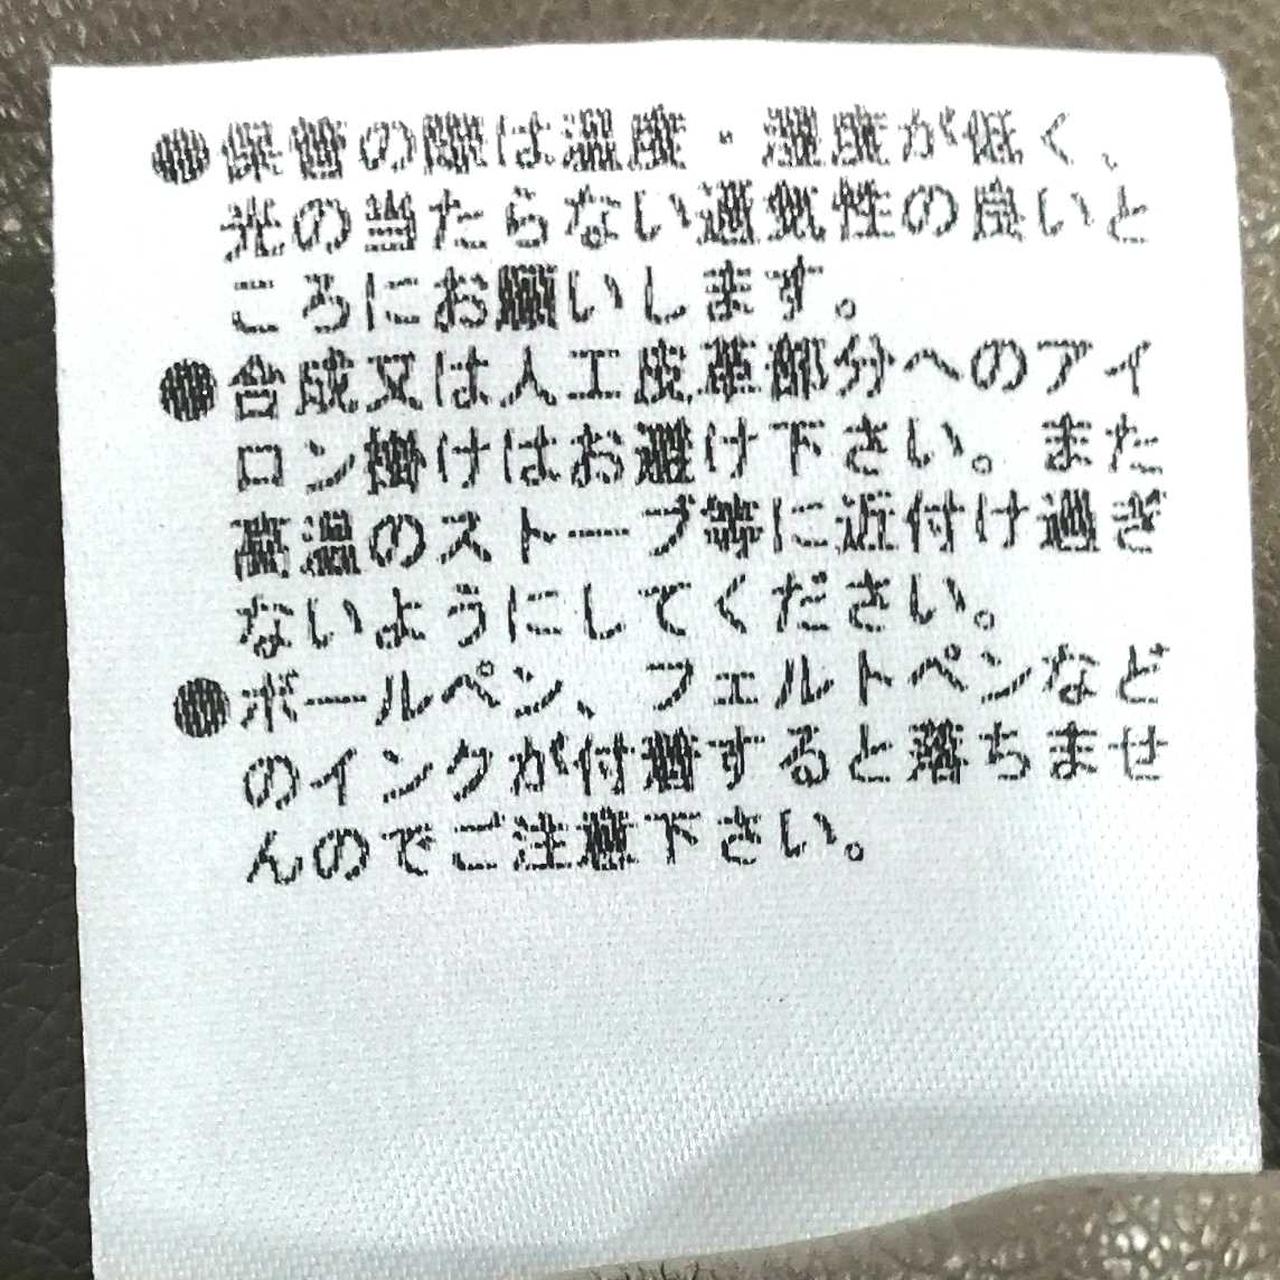 ●保管の際は温度・湿度が低く、
光の当たらない通気性の良いと
ころにお願いします。
●合成又は人工皮革部分へのアイ
ロン掛けはお避け下さい。また
高温のストーブ等に近付け過ぎ
ないようにしてください。
●ボールペン、フェルトペンなど
のインクが付着すると落ちませ
んのでご注意下さい。